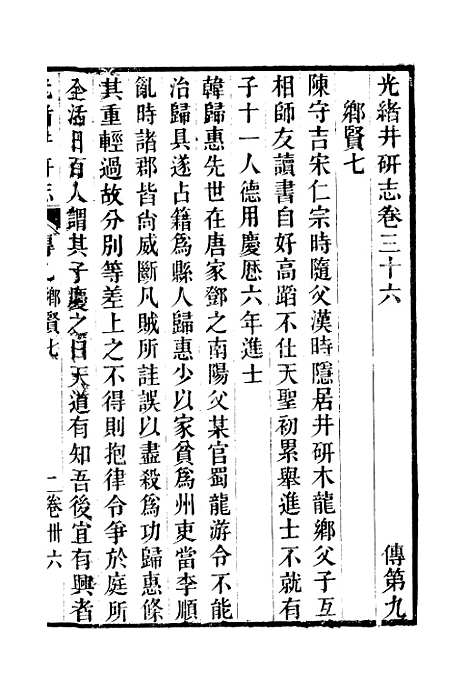 光緒井研志卷三十六 傳第九
鄉賢七
陳守吉宋仁宗時隨父漢時隱居井研木龍鄉父子互
相師友讀書自好高蹈不仕天聖初累舉進士不就有
子十一人德用慶歷六年進士
韓歸惠先世在唐家鄧之南陽父某官蜀龍游令不能
治歸具遂占籍爲縣人歸惠少以家貧爲州吏當李順
亂時諸郡皆尙威斷凡賊所詿誤以盡殺爲功歸惠條
其重輕過故分別等差上之不得則抱律令爭於庭所
全活日百人謂其子慶之曰天道有知吾後宜有興者
光緒井研志 傳九鄉賢七 二卷卅六